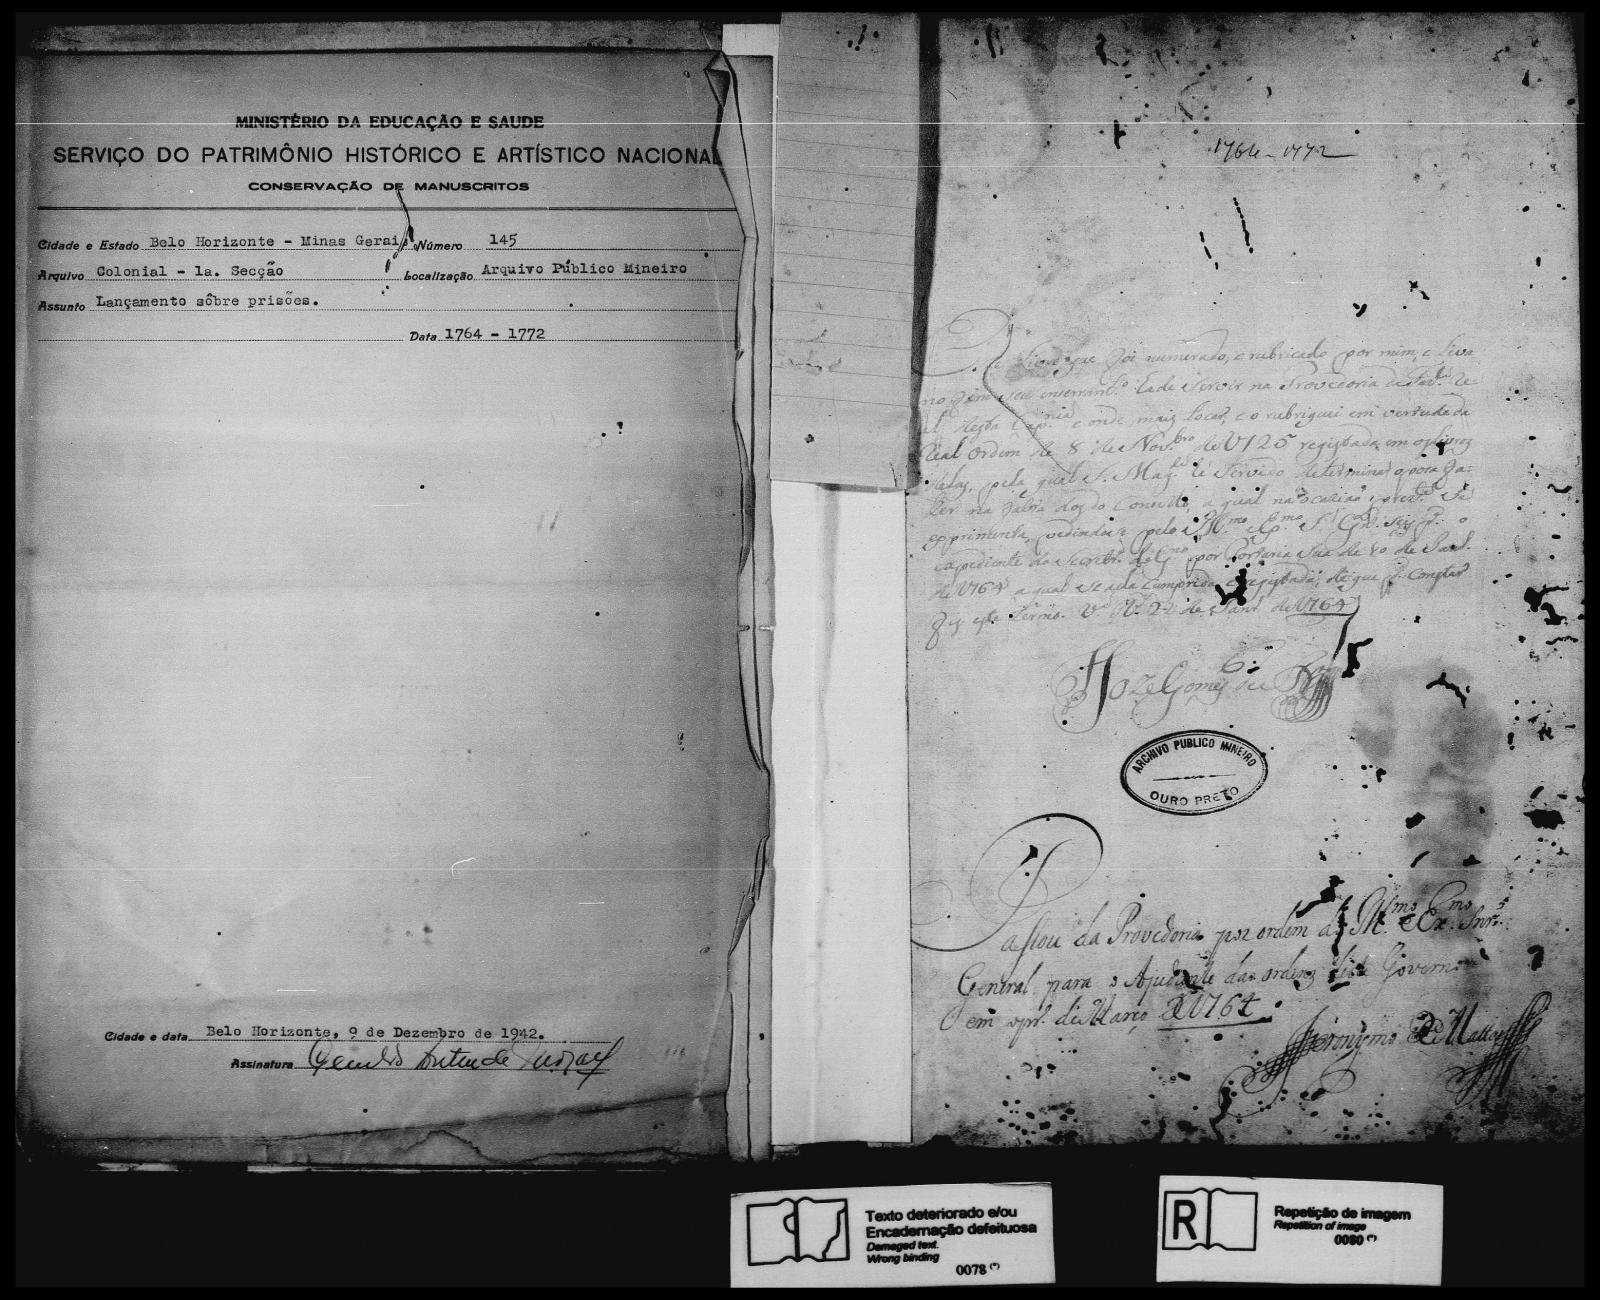 MINISTÉRIO DA EDUCAÇÃO E SAUDE
SERVIÇO DO PATRIMÔNIO HISTÓRICO E ARTÍSTICO NACIONAL
CONSERVAÇÃO DE MANUSCRITOS
Cidade e Estado Belo Horizonte - Minas Gerais Número 145
Arquivo Colonial - 1a. Secção Localização Arquivo Público Mineiro
Assunto Lançamento sôbre prisões.
Data 1764 - 1772
Cidade e data Belo Horizonte, 9 de Dezembro de 1942.
Assinatura
1764-1772
Livro que foi numerado, e rubricado por mim, e leva
no fim seu enserram.to hade servir na Provedoria da Faz.da Re
al desta Cap.nia e onde mais tocar, e o rubriquei em vertude da
Real ordem de 8 de Nov.bro de 1725 registada em os livros
dellas, pela qual S. Mag.de he servido determinar o possa fa
zer na falta dos do Concelho, a qual na ocazião prez.te se
expprimenta, pedindo-se pelo Ill.mo e Ex.mo S.r G.al p.a o
expediente da Secretr.a do G.no por Portaria sua de 10 de Jan.ro
de 1764 a qual se acha cumprida e registada, de que p.a constar
fiz este termo. V.a R.a 22 de Jan.ro de 1764
Joze Gomes de
ARCHIVO PUBLICO MINEIRO
OURO PRETO
Passou da Provedoria por ordem do Ill.mo e Ex.mo Snr.
General para o Ajudante das ordens deste Governo
em o pr.o de Março de 1764
Jeronymo de Mattos
Texto deteriorado e/ou
Encadernação defeituosa
Damaged text.
Wrong binding
0078 (*)
R
Repetição de imagem
Repetition of image
0080 (*)